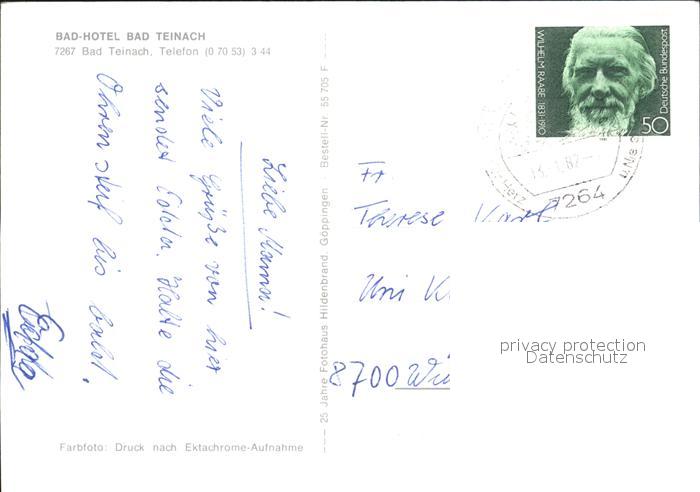 BAD-HOTEL BAD TEINACH
7267 Bad Teinach, Telefon (0 70 53) 3 44
Liebe Mama!
Viele Grüße von hier
sendet Edda. Halte die
Ohren steif bis bald.
Edda
Farbfoto: Druck nach Ektachrome-Aufnahme
25 Jahre Fotohaus Hildenbrand, Göppingen Bestell-Nr. 55 705 F
WILHELM RAABE 1831-1910
Deutsche Bundespost
50
7264
Fr.
Therese
Uni K
8700 Wü
privacy protection
Datenschutz